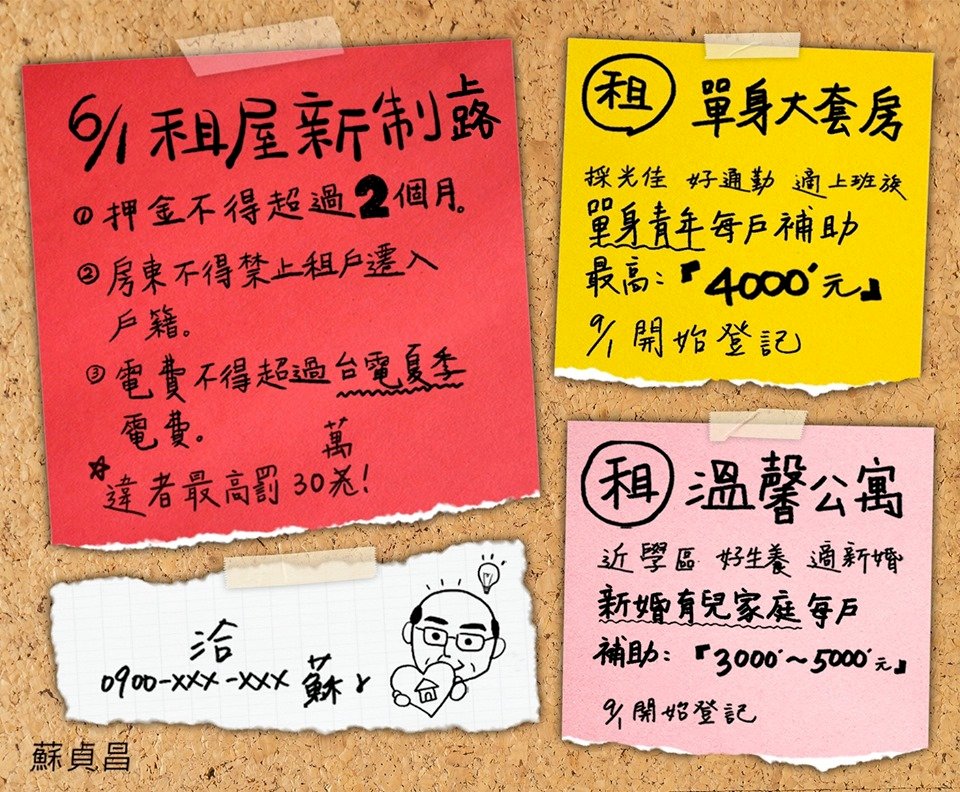 6/1 租屋新制上路
①押金不得超過2個月。
②房東不得禁止租戶遷入
戶籍。
③電費不得超過台電夏季
電費。
☆違者最高罰30萬!
租 單身大套房
採光佳 好通勤 適上班族
單身青年每戶補助
最高:『4000'元』
9/1開始登記
租 溫馨公寓
近學區 好生養 適新婚
新婚育兒家庭每戶
補助:『3000'~5000'元』
9/1開始登記
洽
0900-xxx-xxx 蘇
蘇貞昌